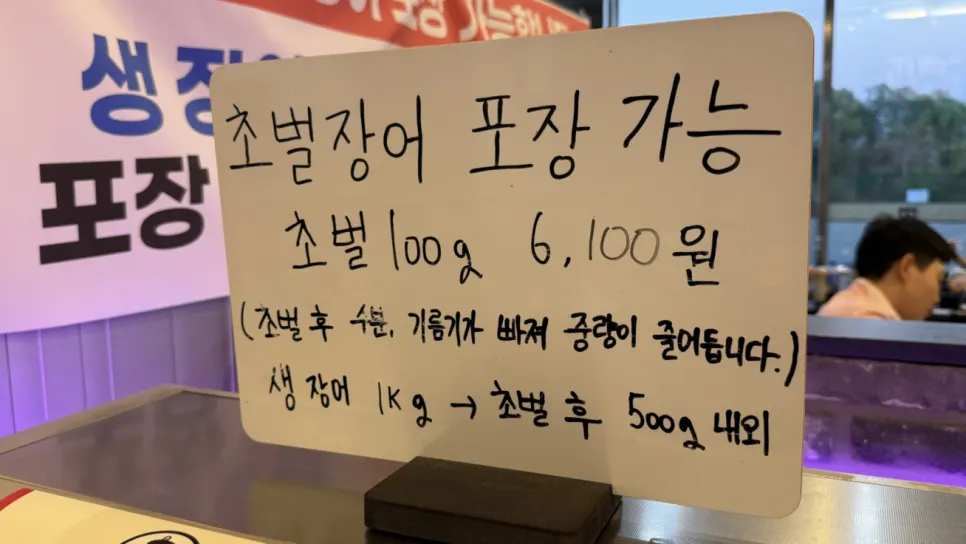 생
포장
초벌장어 포장 가능
초벌 100g 6,100원
(초벌 후 수분, 기름기가 빠져 중량이 줄어듭니다.)
생 장어 1Kg → 초벌 후 500g 내외